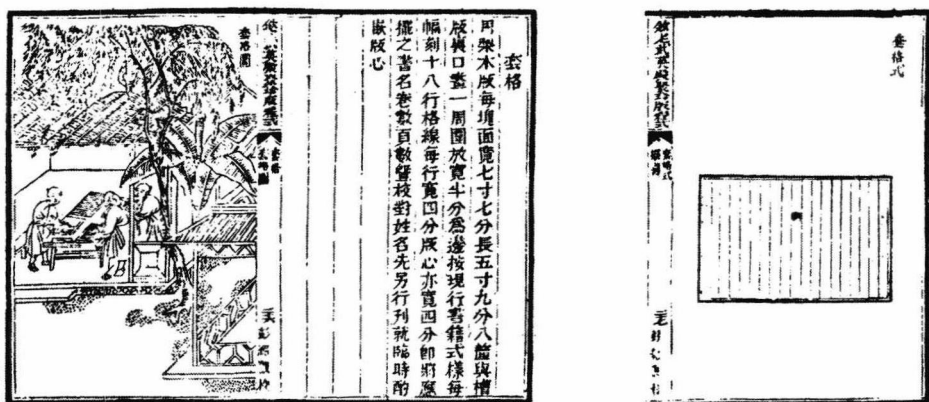 套格
用梨木版每塊面寬七寸七分長五寸九分八釐與槽
版裏口畫一周圍放寬半分爲邊按現行書籍式樣每
幅刻十八行格線每行寬四分版心亦寬四分卽將應
擺之書名卷數頁數暨校對姓名先另行刊就臨時酌
嵌版心
欽定武英殿聚珍版程式
套格
套格圖
套格式
欽定武英殿聚珍版程式
套格式